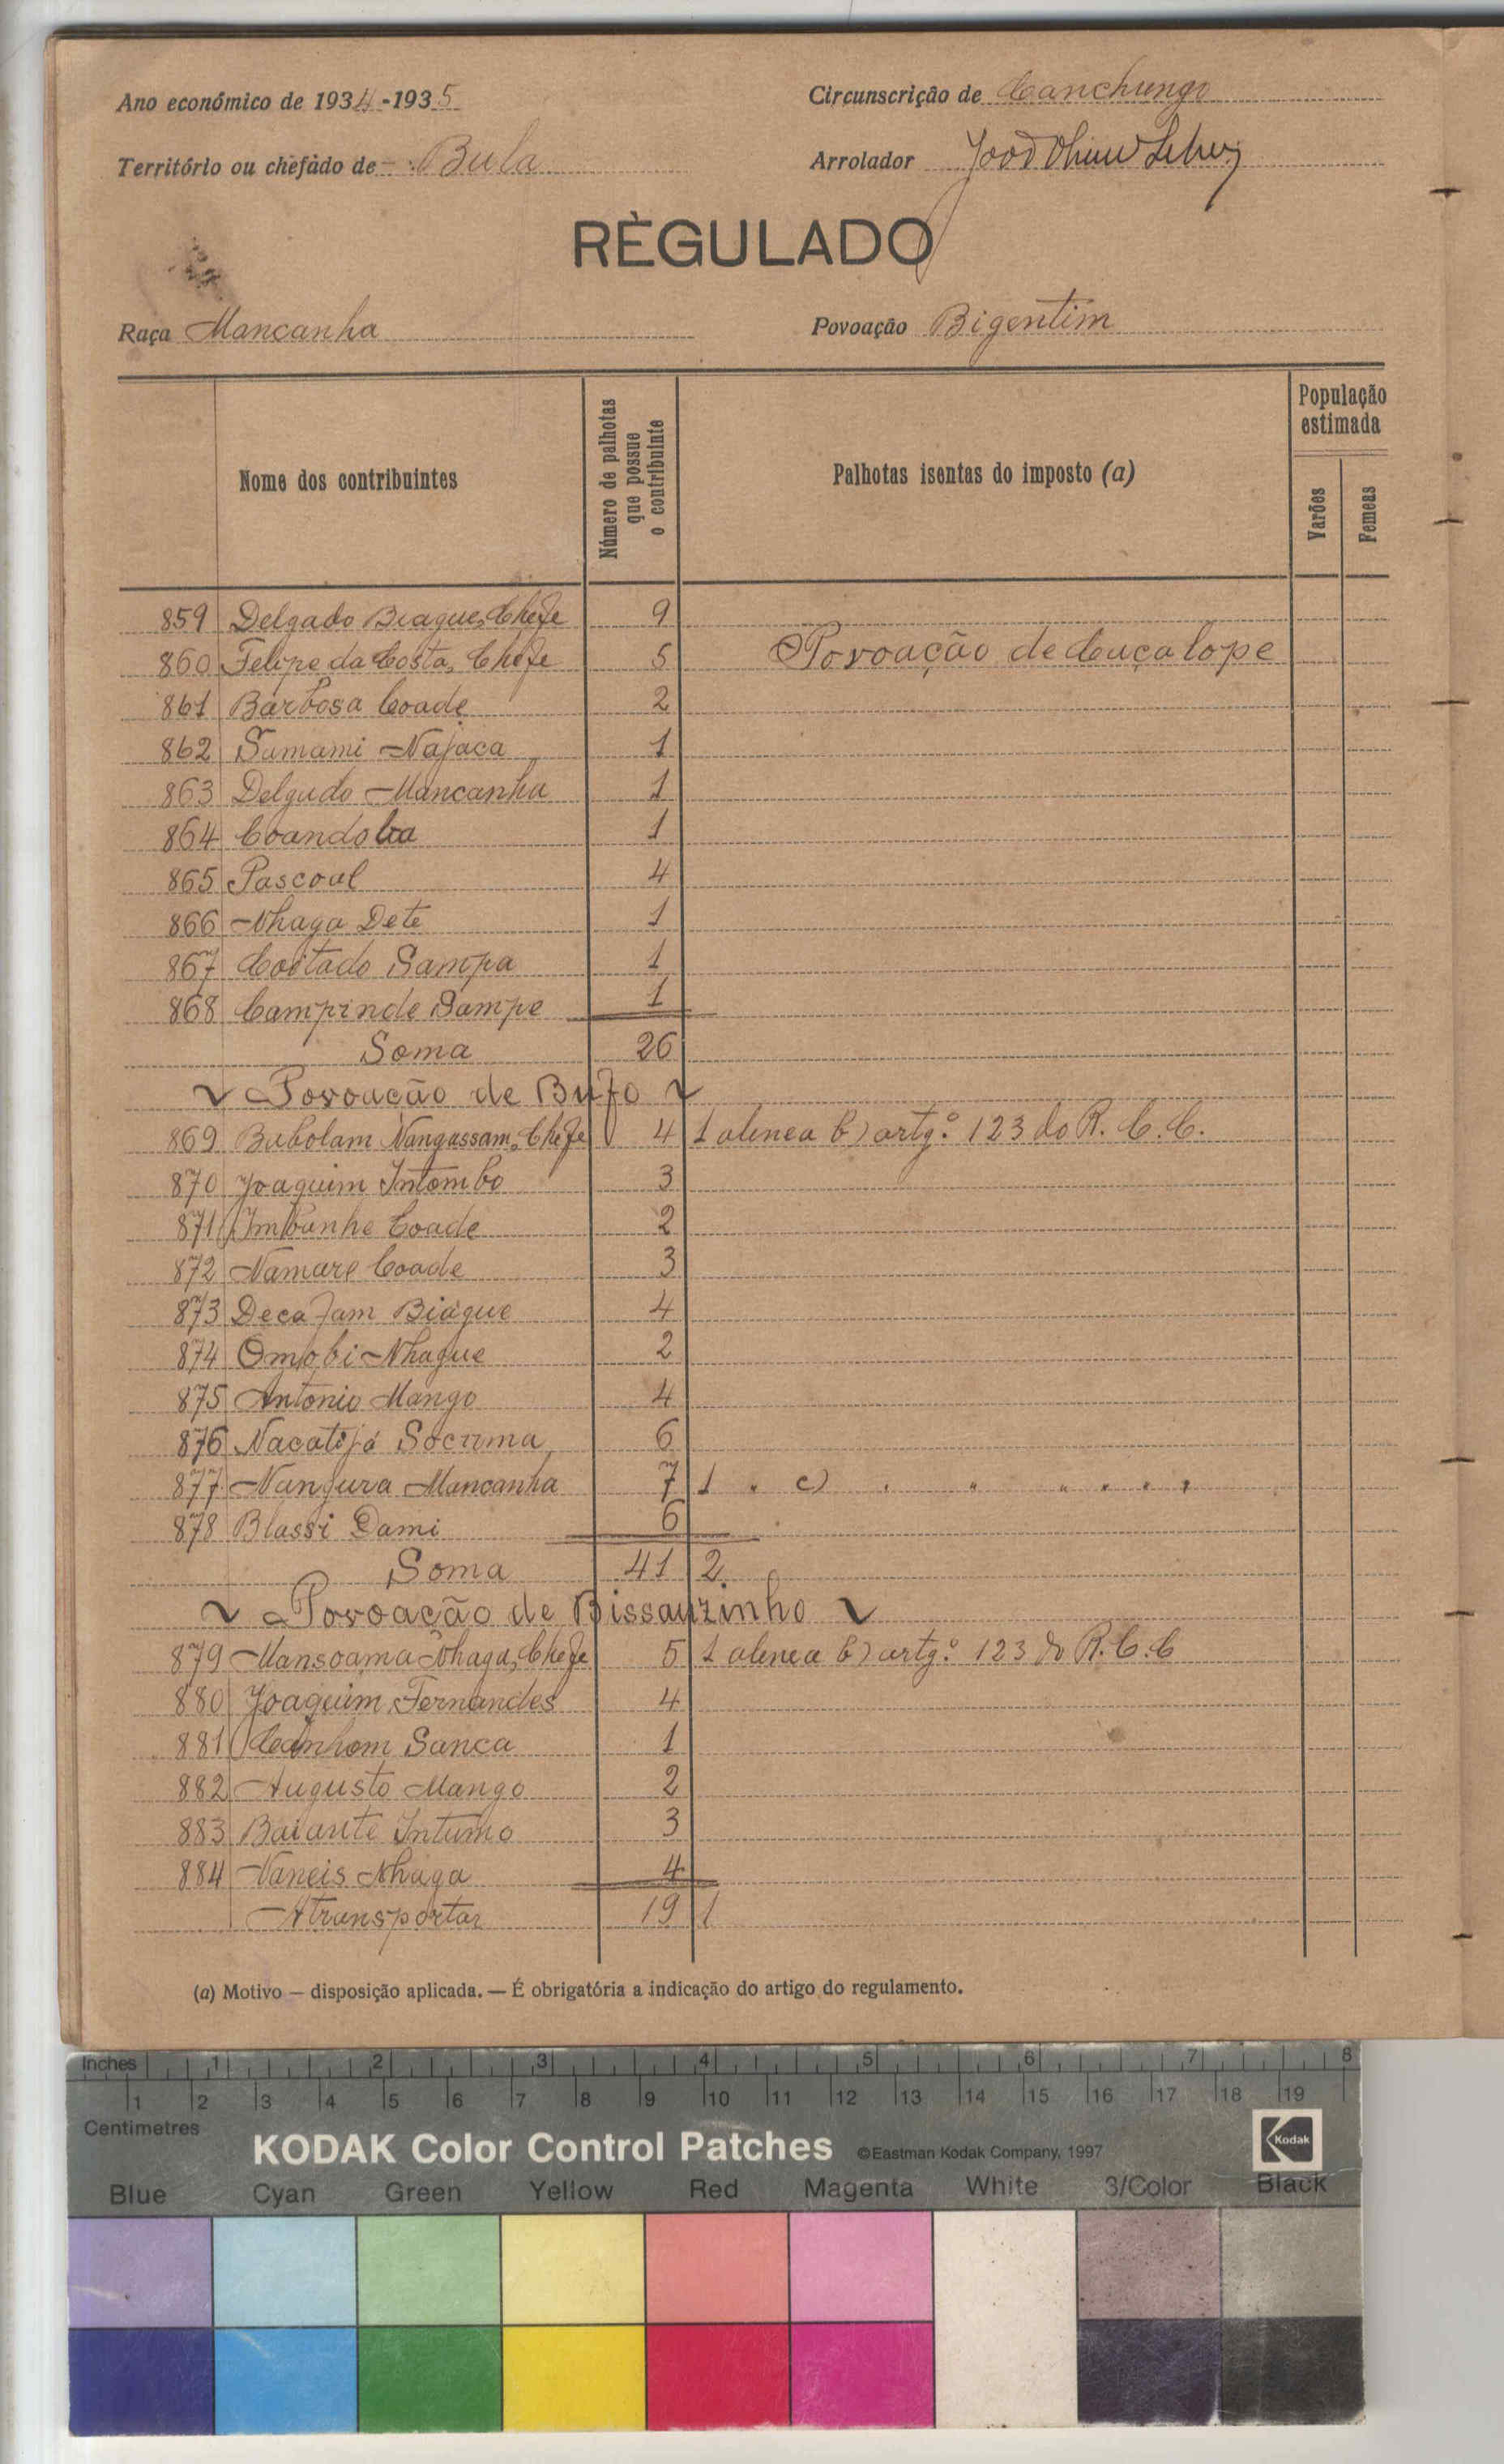 Ano económico de 1934-1935
Circunscrição de Canchungo
Território ou chefado de Bula
Arrolador João
RÈGULADO
Raça Mancanha
Povoação Bigentim
Nome dos contribuintes
Número de palhotas que possue o contribuinte
Palhotas isentas do imposto (a)
População estimada
Varões
Femeas
859 Delgado Biague, Chefe 9
860 Felipe da Costa, Chefe 5 Povoação de Cuçalope
861 Barbosa Coade 2
862 Samami Najaca 1
863 Delgado Mancanha 1
864 1
865 Pascoal 4
866 Nhaga Dete 1
867 Coitado Sampa 1
868 Campinde Sampe 1
Soma 26
Povoação de Bufo
869 Bubolam Nangassam, Chefe 4 1 alinea b) artg.º 123 do R. C. C.
870 Joaquim Intombo 3
871 Imbunhe Coade 2
872 Namare Coade 3
873 Decafam Biágue 4
874 Omobi Nhague 2
875 Antonio Mango 4
876 Nacatijá Socuma 6
877 Nanjura Mancanha 7 1 " c) " " " " " "
878 Blassi Dami 6
Soma 41 2
Povoação de Bissauzinho
879 Mansoama Nhaga, Chefe 5 1 alinea b) artg.º 123 do R. C. C
880 Joaquim Fernandes 4
881 Canhom Sanca 1
882 Augusto Mango 2
883 Baiante Intumo 3
884 Naneis Nhaga 4
A transportar 19 1
(a) Motivo — disposição aplicada. — É obrigatória a indicação do artigo do regulamento.
Inches 1 2 3 4 5 6 7 8
1 2 3 4 5 6 7 8 9 10 11 12 13 14 15 16 17 18 19
Centimetres
KODAK Color Control Patches ©Eastman Kodak Company, 1997 Kodak
Blue Cyan Green Yellow Red Magenta White 3/Color Black